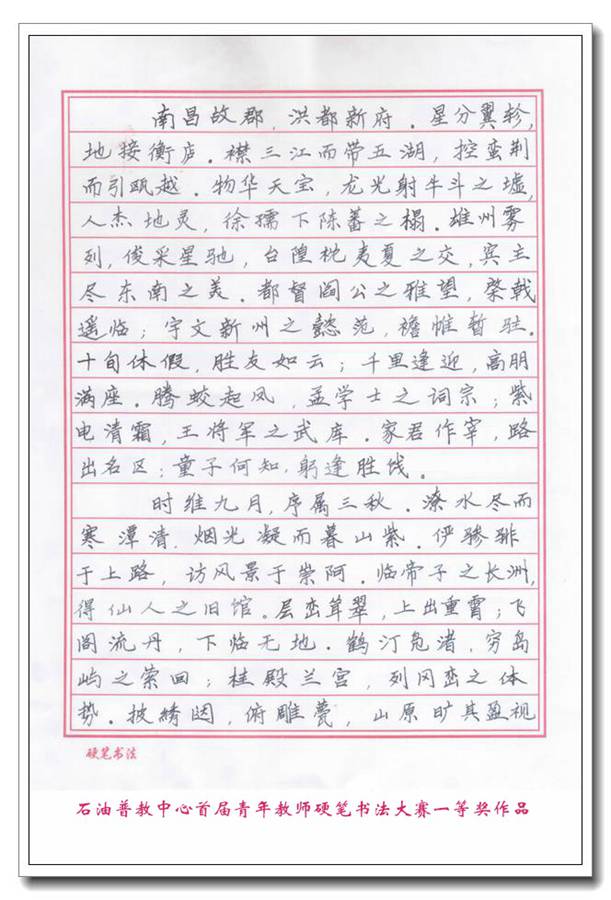 南昌故郡，洪都新府．星分翼轸，
地接衡庐．襟三江而带五湖，控蛮荆
而引瓯越．物华天宝，龙光射牛斗之墟，
人杰地灵，徐孺下陈蕃之榻．雄州雾
列，俊采星驰，台隍枕夷夏之交，宾主
尽东南之美．都督阎公之雅望，棨戟
遥临；宇文新州之懿范，襜帷暂驻．
十旬休假，胜友如云；千里逢迎，高朋
满座．腾蛟起凤，孟学士之词宗；紫
电清霜，王将军之武库．家君作宰，路
出名区；童子何知．躬逢胜饯．
时维九月，序属三秋．潦水尽而
寒潭清．烟光凝而暮山紫．俨骖騑
于上路，访风景于崇阿．临帝子之长洲，
得仙人之旧馆．层峦耸翠，上出重霄；飞
阁流丹，下临无地．鹤汀凫渚，穷岛
屿之萦回；桂殿兰宫，列冈峦之体
势．披绣闼，俯雕甍，山原旷其盈视
硬笔书法
石油普教中心首届青年教师硬笔书法大赛一等奖作品